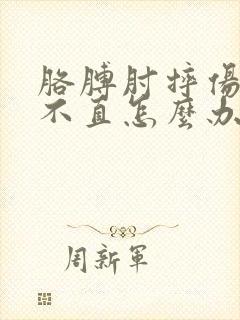 胳膊肘摔傷
不直怎麼办
周新軍